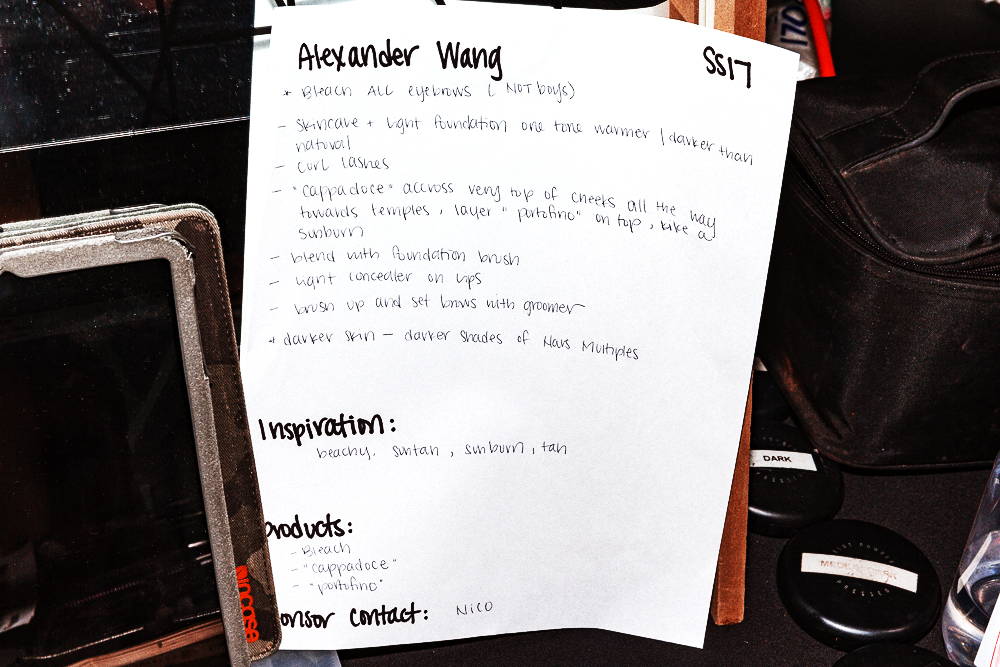 Alexander Wang SS17
* Bleach ALL eyebrows ( NOT boys)
- skincare + light foundation one tone warmer / darker than
natural
- curl lashes
- "cappadoce" accross very top of cheeks all the way
towards temples, layer "portofino" on top, like a
sunburn
- blend with foundation brush
- light concealer on lips
- brush up and set brows with groomer
* darker skin — darker shades of Nars Multiples
Inspiration:
beachy, suntan, sunburn, tan
products:
- Bleach
- "cappadoce"
- "portofino"
onsor contact: Nico
incase
170
DARK
MEDIUM DARK
PRESSED